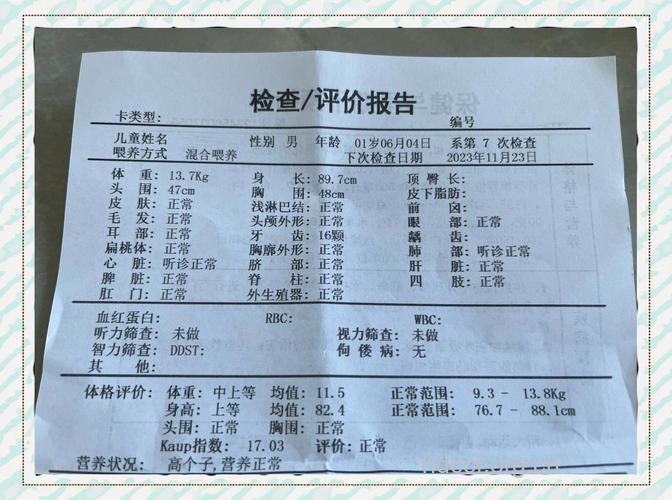 检查/评价报告
卡类型： 编号
儿童姓名 性别 男 年龄 01岁06月04日 系第 7 次检查
喂养方式 混合喂养 下次检查日期 2023年11月23日
体 重：13.7Kg 身 长：89.7cm 顶 臀 长：
头 围：47cm 胸 围：48cm 皮下脂肪：
皮 肤：正常 浅淋巴结：正常 前 囟：
毛 发：正常 头颅外形：正常 眼 部：正常
耳 部：正常 牙 齿：16颗 龋 齿：
扁桃体：正常 胸廓外形：正常 肺 部：听诊正常
心 脏：听诊正常 脐 部：正常 肝 脏：正常
脾 脏：正常 脊 柱：正常 四 肢：正常
肛 门：正常 外生殖器：正常
血红蛋白： RBC: WBC:
听力筛查：未做 视力筛查：未做
智力筛查：DDST: 佝 偻 病：无
其 他：
体格评价：体重：中上等 均值：11.5 正常范围： 9.3 - 13.8Kg
身高：上等 均值：82.4 正常范围： 76.7 - 88.1cm
头围：正常 胸围：正常
Kaup指数： 17.03 评价：正常
营养状况： 高个子,营养正常